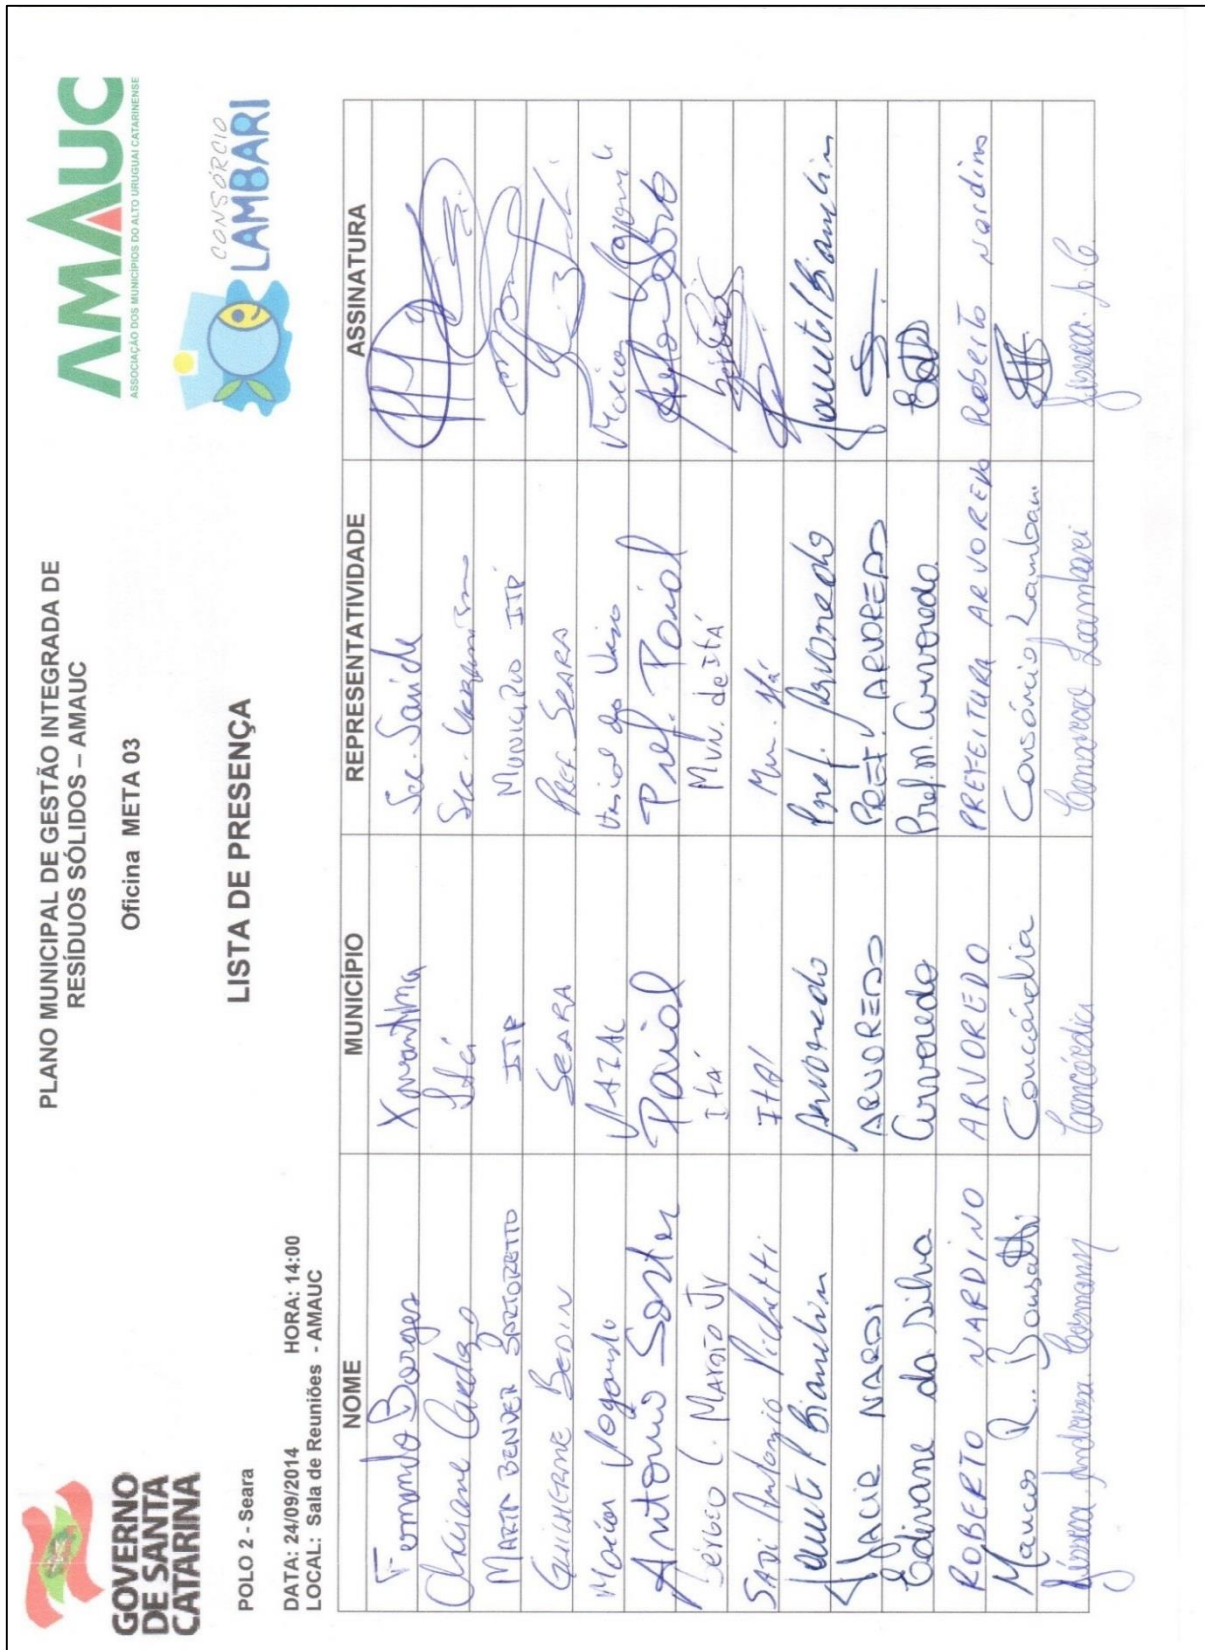 GOVERNO
DE SANTA
CATARINA
PLANO MUNICIPAL DE GESTÃO INTEGRADA DE
RESÍDUOS SÓLIDOS – AMAUC
Oficina META 03
AMAUC
ASSOCIAÇÃO DOS MUNICÍPIOS DO ALTO URUGUAI CATARINENSE
CONSÓRCIO
LAMBARI
POLO 2 - Seara
LISTA DE PRESENÇA
DATA: 24/09/2014 HORA: 14:00
LOCAL: Sala de Reuniões - AMAUC
NOME MUNICÍPIO REPRESENTATIVIDADE ASSINATURA
Fernando Borges Xavantina Sec. Saúde
Cardozo Itá Sec. Urbanismo
MARTA BENDER SARTORETTO ITÁ MUNICÍPIO ITÁ
GUILHERME BEDIN SEARA PREF. SEARA
Antonio Sorter Paial Pref. Paial
C. MAROTO Jr ITÁ MUN. de ITÁ
SADI Antonio Pichetti ITÁ Mun. Itá
Bianchin Arvoredo Pref. Arvoredo Bianchin
NARDI ARVOREDO PREF. ARVOREDO
Edivane da Silva Arvoredo Pref. M. Arvoredo
ROBERTO NARDINO ARVOREDO PREFEITURA ARVOREDO Roberto Nardino
R. Concórdia Consórcio Lambari
Jéssica Andressa Cosmann Concórdia Consórcio Lambari Jéssica A. C.